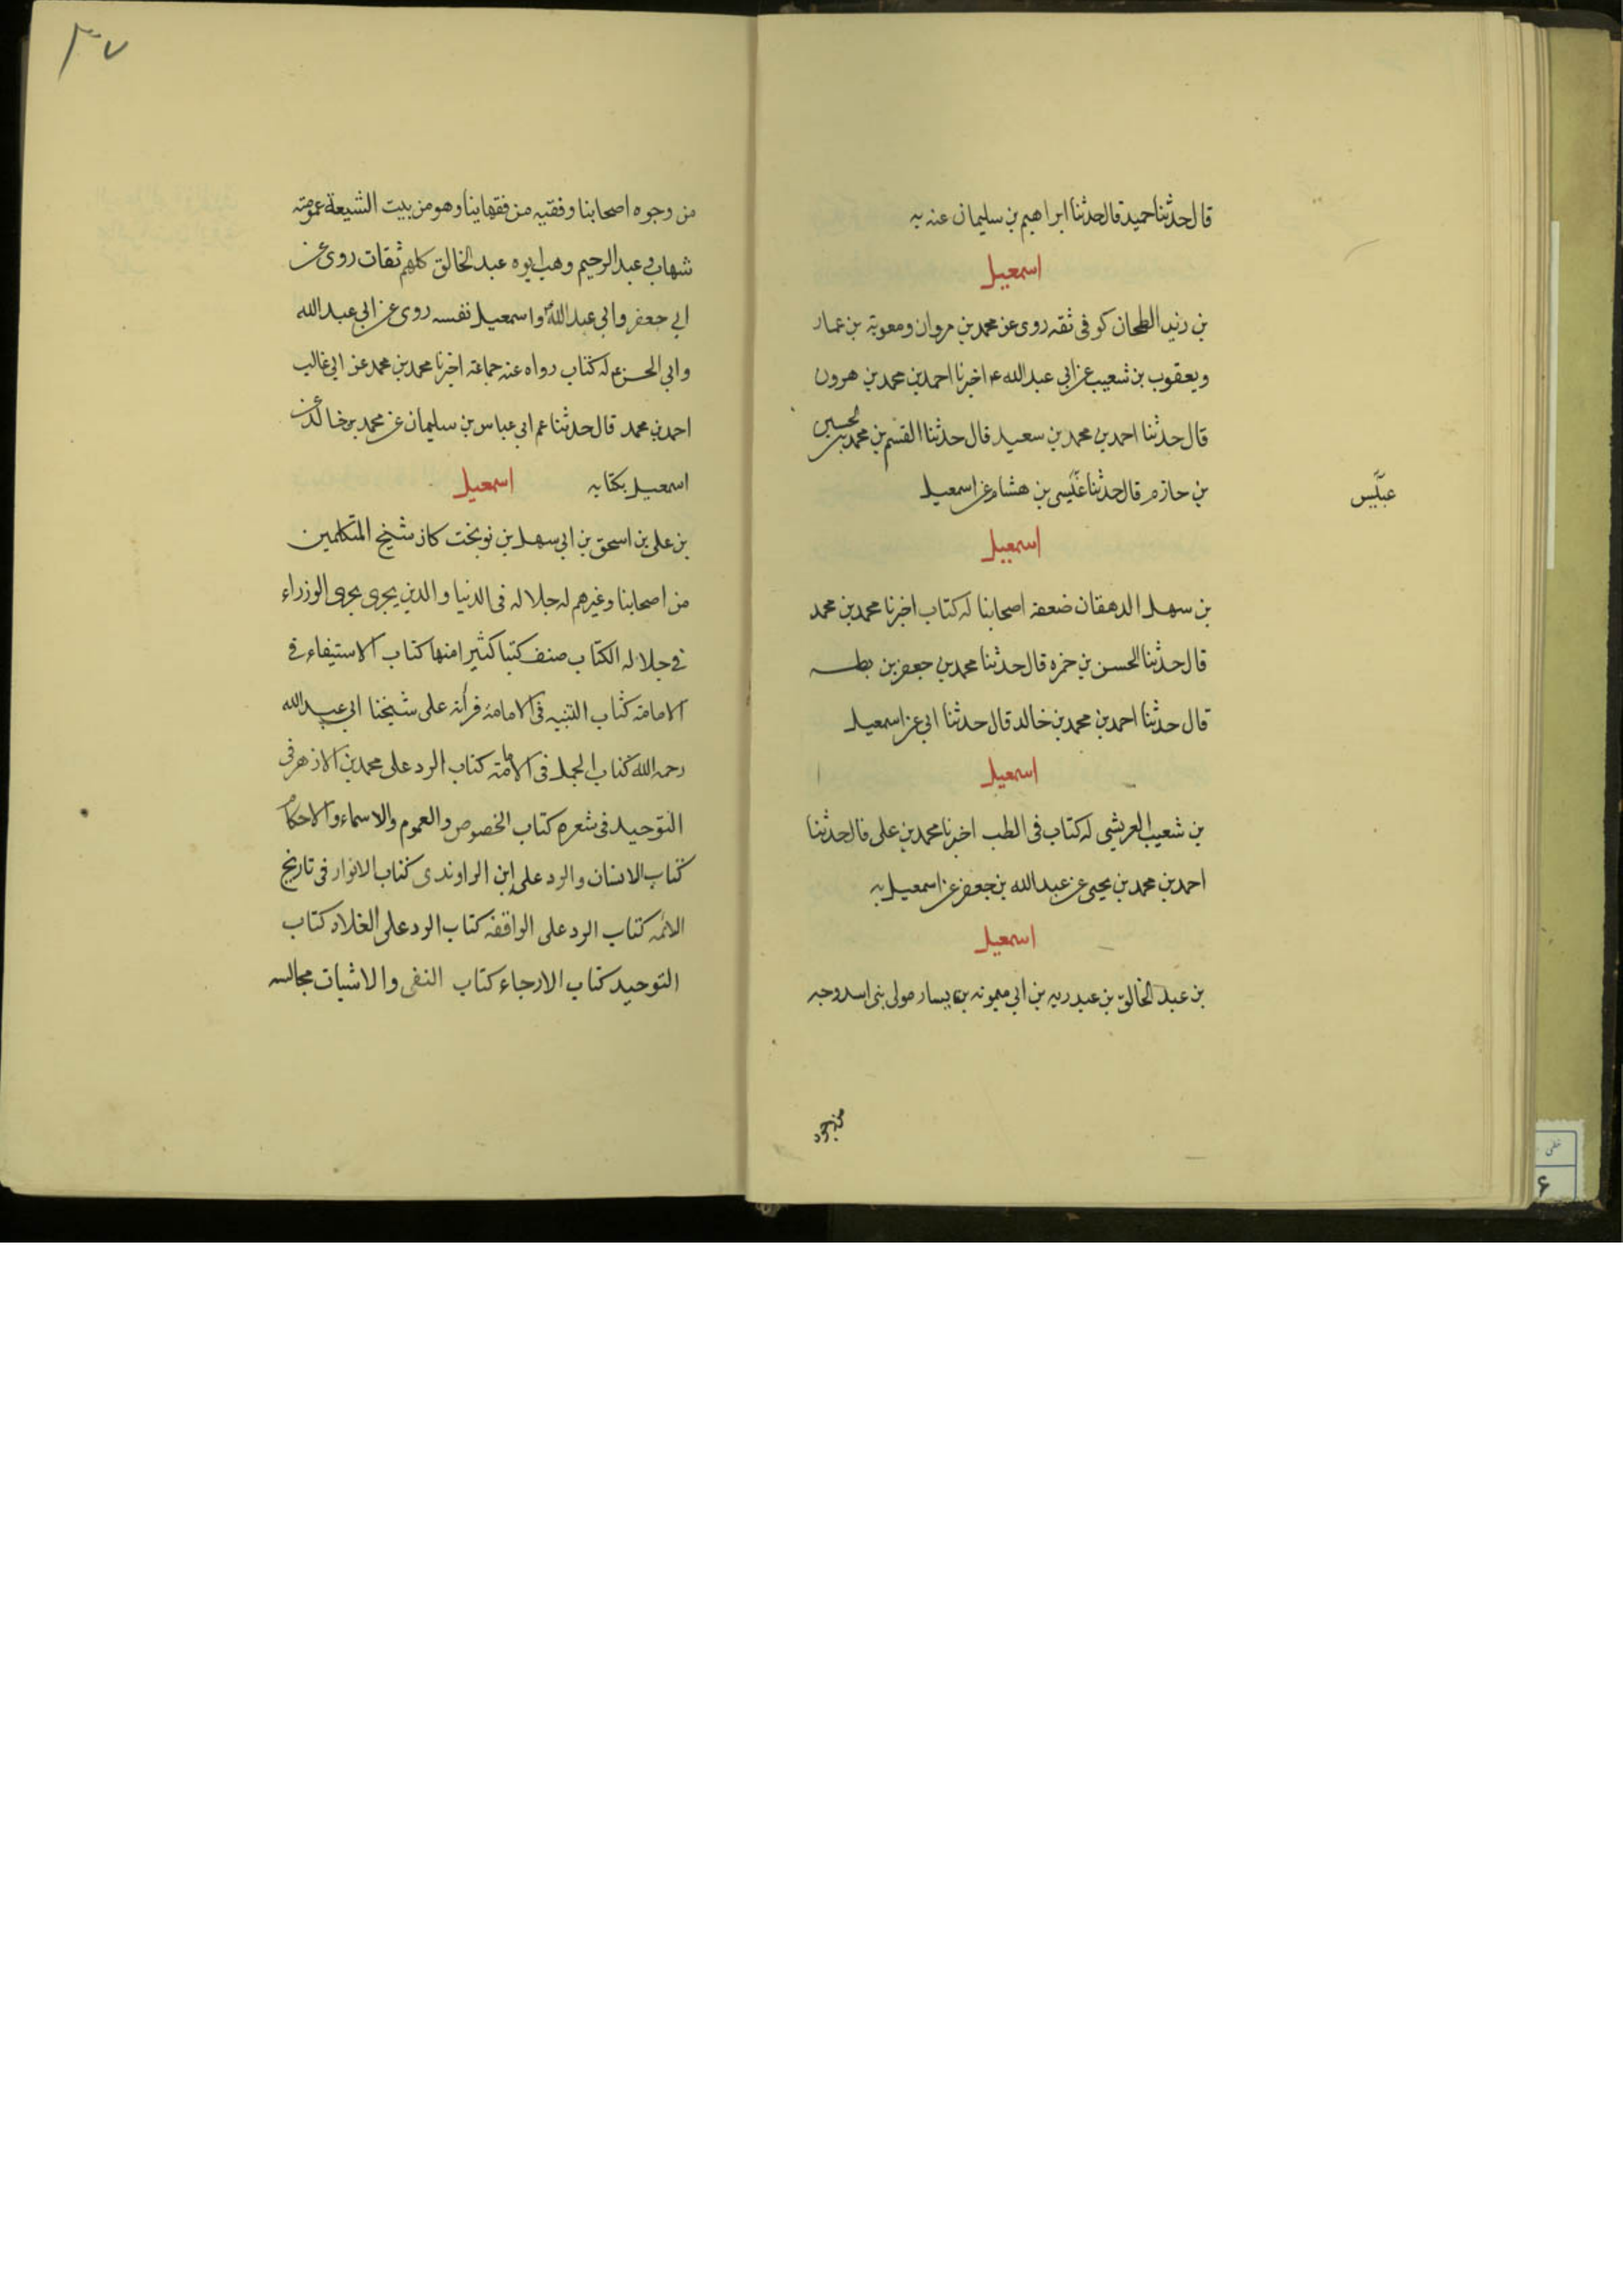 قال حدثنا حميد قال حدثنا ابراهيم بن سليمان عنه به
اسمعيل
بن زيد الطحان كوفي ثقه روى عن محمد بن مروان ومعوية بن عمار
ويعقوب بن شعيب عن ابي عبدالله ع اخبرنا احمد بن محمد بن هرون
قال حدثنا احمد بن محمد بن سعيد قال حدثنا القسم بن محمد بن الحسين
بن حازم قال حدثنا عبيس بن هشام عن اسمعيل
عبيس
اسمعيل
بن سهل الدهقان ضعفه اصحابنا له كتاب اخبرنا محمد بن محمد
قال حدثنا الحسن بن حمزه قال حدثنا محمد بن جعفر بن بطه
قال حدثنا احمد بن محمد بن خالد قال حدثنا ابي عن اسمعيل
اسمعيل
بن شعيب العريشى له كتاب فى الطب اخبرنا محمد بن على قال حدثنا
احمد بن محمد بن يحيى عن عبدالله بن جعفر عن اسمعيل به
اسمعيل
بن عبد الخالق بن عبد ربه بن ابي ميمونه بن يسار مولى بنى اسد وجه
من وجوه
٣٧
من وجوه اصحابنا وفقيه من فقهاينا وهو من بيت الشيعة عمومته
شهاب وعبد الرحيم وهب ابوه عبد الخالق كلهم ثقات روى عن
ابي جعفر وابي عبدالله واسمعيل نفسه روى عن ابي عبدالله
وابي الحسن ع له كتاب رواه عنه جماعة اخبرنا محمد بن محمد عن ابي غالب
احمد بن محمد قال حدثنا عم ابي عباس بن سليمان عن محمد بن خالد عن
اسمعيل بكتابه اسمعيل
بن علي بن اسحق بن ابي سهل بن نوبخت كان شيخ المتكلمين
من اصحابنا وغيرهم له جلاله فى الدنيا والدين يجرى مجرى الوزراء
في جلاله الكتاب صنف كتبا كثيرا منها كتاب الاستيفاء في
الامامة كتاب التنبيه فى الامامة قرأته على شيخنا ابي عبدالله
رحمه الله كتاب الجمل فى الامامة كتاب الرد على محمد بن الازهر فى
التوحيد فى شعره كتاب الخصوص والعموم والاسماء والاحكام
كتاب الانسان والرد على ابن الراوندى كتاب الانوار فى تاريخ
الائمه كتاب الرد على الواقفه كتاب الرد على الغلاه كتاب
التوحيد كتاب الارجاء كتاب النفى والاثبات مجالسه